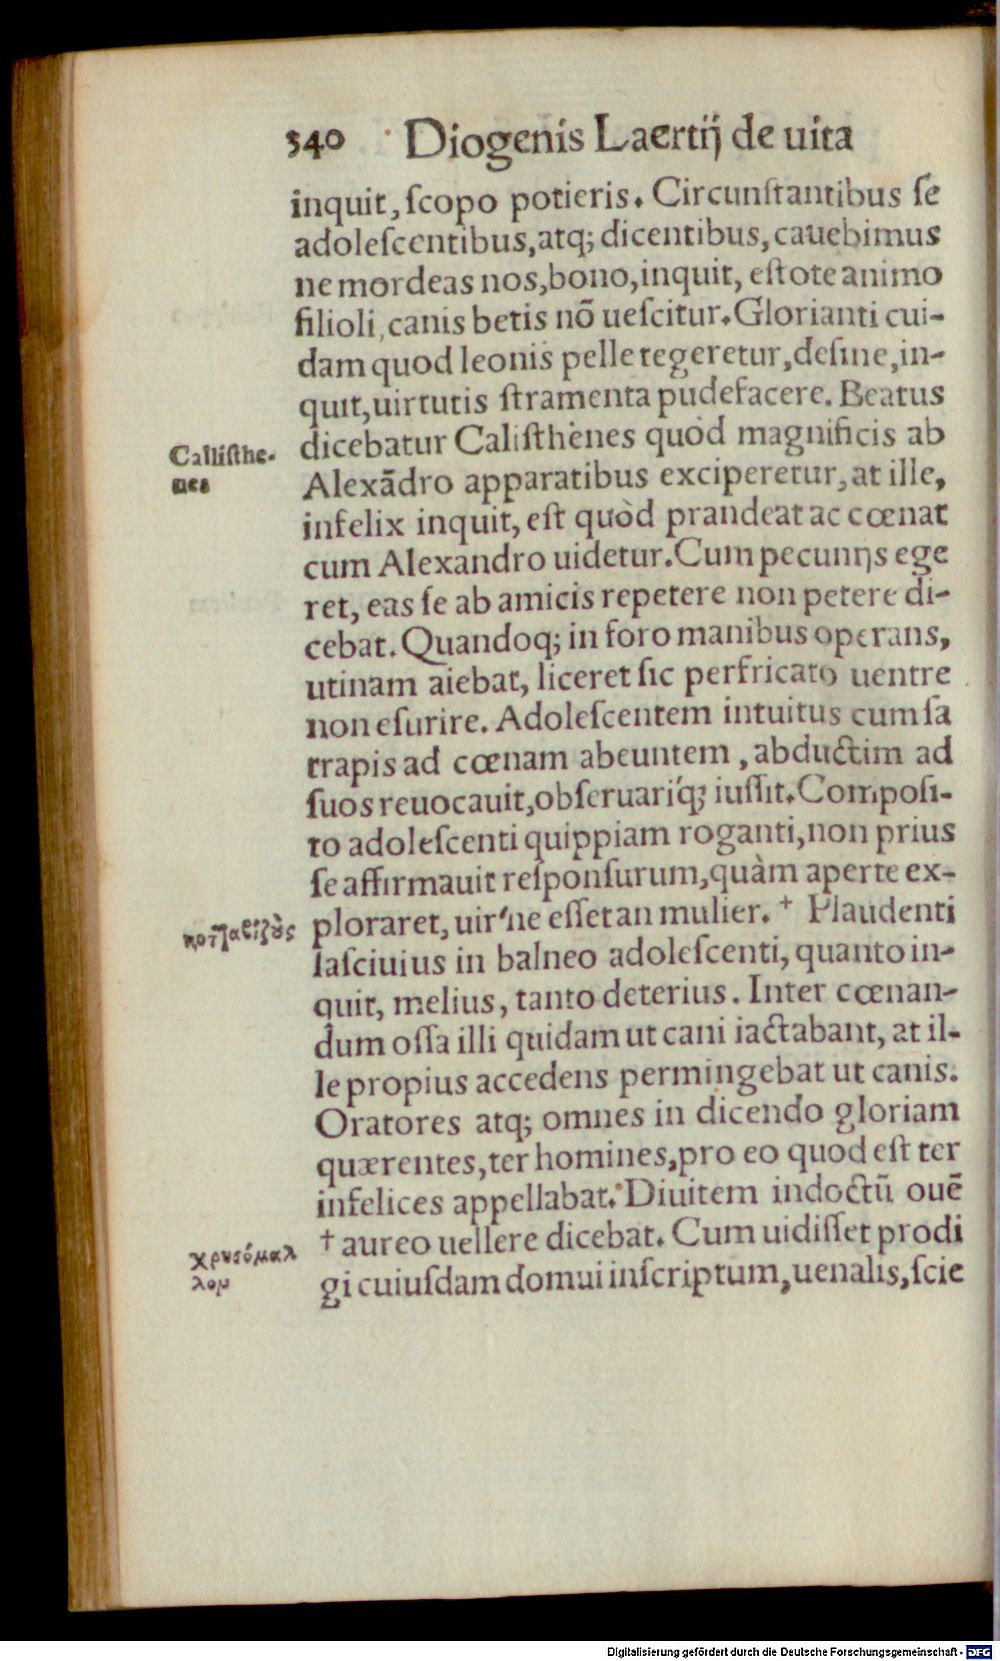 340 Diogenis Laertij de uita
inquit, ſcopo potieris. Circunſtantibus ſe
adoleſcentibus, atq; dicentibus, cauebimus
ne mordeas nos, bono, inquit, eſtote animo
filioli, canis betis nõ ueſcitur. Glorianti cui-
dam quod leonis pelle tegeretur, deſine, in-
quit, uirtutis ſtramenta pudefacere. Beatus
Calliſthe-
nes
dicebatur Caliſthenes quòd magnificis ab
Alexãdro apparatibus exciperetur, at ille,
infelix inquit, eſt quòd prandeat ac cœnat
cum Alexandro uidetur. Cum pecunijs ege
ret, eas ſe ab amicis repetere non petere di-
cebat. Quandoq; in foro manibus operans,
utinam aiebat, liceret ſic perfricato uentre
non eſurire. Adoleſcentem intuitus cum ſa
trapis ad cœnam abeuntem, abductim ad
ſuos reuocauit, obſeruariq́; iuſſit. Compoſi-
to adoleſcenti quippiam roganti, non prius
ſe affirmauit reſponſurum, quàm aperte ex-
ploraret, uir'ne eſſet an mulier. † Plaudenti
laſciuius in balneo adoleſcenti, quanto in-
quit, melius, tanto deterius. Inter cœnan-
dum oſſa illi quidam ut cani iactabant, at il-
le propius accedens permingebat ut canis.
Oratores atq; omnes in dicendo gloriam
quærentes, ter homines, pro eo quod eſt ter
infelices appellabat. Diuitem indoctũ ouẽ
χρυσόμαλ
λον
† aureo uellere dicebat. Cum uidiſſet prodi
gi cuiuſdam domui inſcriptum, uenalis, ſcie
Digitalisierung gefördert durch die Deutsche Forschungsgemeinschaft - DFG